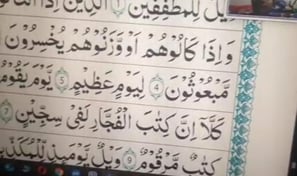 يْلٌ لِّلْمُطَفِّفِيْنَ ۝١ الَّذِيْنَ اِذَا
وَاِذَا كَالُوْهُمْ اَوْ وَّزَنُوْهُمْ يُخْسِرُوْنَ
مَّبْعُوْثُوْنَ ۝٤ لِيَوْمٍ عَظِيْمٍ ۝٥ يَّوْمَ يَقُوْمُ
كَلَّاۤ اِنَّ كِتٰبَ الْفُجَّارِ لَفِيْ سِجِّيْنٍ ۝٧
كِتٰبٌ مَّرْقُوْمٌ ۝٩ وَيْلٌ يَّوْمَئِذٍ